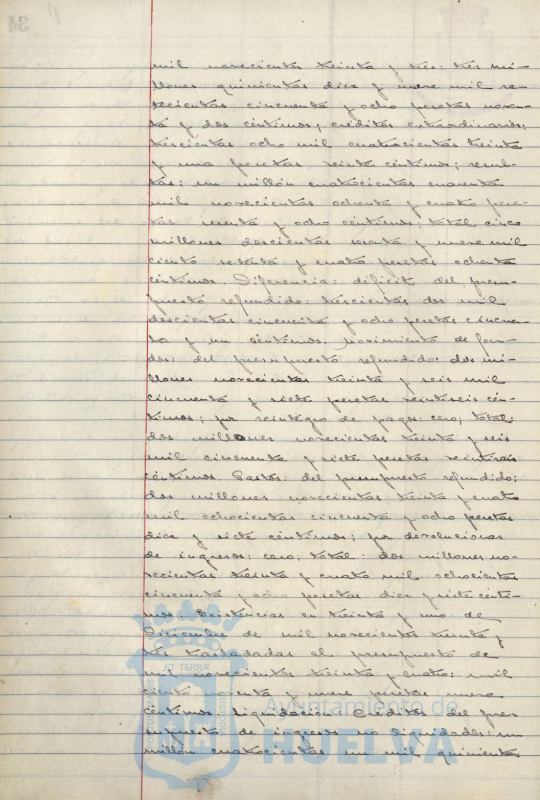 mil novecientos treinta y tres: tres mi-
llones quinientas diez y nueve mil se-
tecientas cincuenta y ocho pesetas noven-
ta y dos céntimos; créditos extraordinarios:
trescientas ocho mil cuatrocientas treinta
y una pesetas veinte céntimos; resul-
tas: un millón cuatrocientas cuarenta
mil novecientas ochenta y cuatro pese-
tas sesenta y ocho céntimos; total cinco
millones doscientas sesenta y nueve mil
ciento setenta y cuatro pesetas ochenta
céntimos. Diferencia: déficit del presu-
puesto refundido: trescientas dos mil
doscientas cincuenta y ocho pesetas cincuen-
ta y un céntimos. Movimiento de fon-
dos: del presupuesto refundido: dos mi-
llones novecientas treinta y seis mil
cincuenta y siete pesetas veintiseis cén-
timos; por reintegro de pagos: cero; total:
dos millones novecientas treinta y seis
mil cincuenta y siete pesetas veintiseis
céntimos. Gastos: del presupuesto refundido:
dos millones novecientas treinta y cuatro
mil ochocientas cincuenta y ocho pesetas
diez y siete céntimos; por devoluciones
de ingresos: cero; total: dos millones no-
vecientas treinta y cuatro mil ochocientas
cincuenta y ocho pesetas diez y siete cénti-
mos. Existencias en treinta y uno de
Diciembre de mil novecientos treinta y
tres trasladadas al presupuesto de
mil novecientos treinta y cuatro: mil
ciento noventa y nueve pesetas nueve
céntimos. Liquidación. Créditos del pre-
supuesto de ingresos no liquidados: un
millón cuatrocientas un mil quinientas
Ayuntamiento de
HUELVA